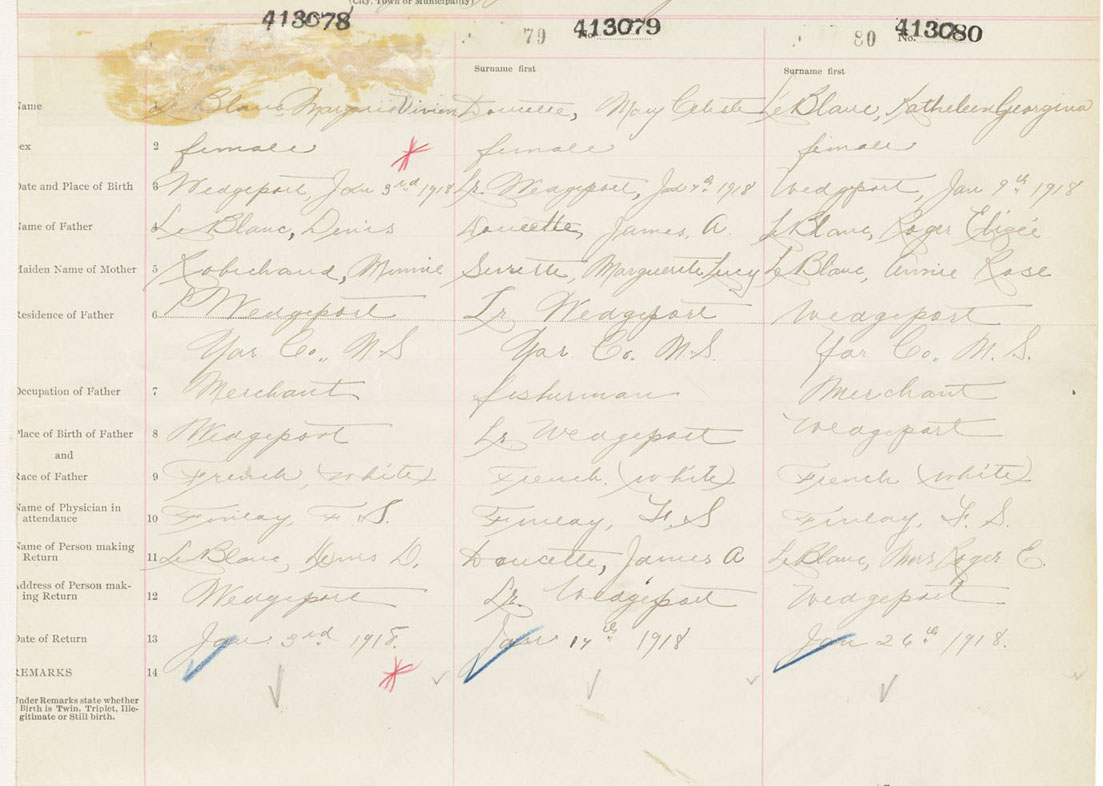 (City, Town or Municipality)
413078 79 No. 413079 80 No. 413080
Surname first Surname first
Name LeBlanc Vivian Doucette, Mary Celeste LeBlanc, Kathleen Georgina
ex 2 female female female
Date and Place of Birth 3 Wedgeport, Jan 3rd 1918 Lr. Wedgeport, 1918 Wedgport, Jan 9th 1918
Name of Father 4 LeBlanc, Denis Doucette, James A. LeBlanc, Roger Elizée
Maiden Name of Mother 5 Robichaud, Minnie Surette, Marguerite Lucy LeBlanc, Annie Rose
Residence of Father 6 Wedgeport Lr. Wedgeport Wedgeport
Yar. Co., N.S Yar. Co. N.S. Yar Co., N.S.
Occupation of Father 7 Merchant fisherman Merchant
Place of Birth of Father 8 Wedgeport Lr Wedgeport Wedgeport
and
Race of Father 9 French (white) French. (white) French (white)
Name of Physician in
attendance 10 Finlay, F S. Finlay, F. S Finlay, F. S.
Name of Person making
Return 11 LeBlanc, Denis D. Doucette, James A LeBlanc, Mrs Roger E.
Address of Person mak-
ing Return 12 Wedgeport Lr. Wedgeport Wedgeport
Date of Return 13 Jan 3rd 1918. Jan 17th 1918 Jan 26th 1918.
REMARKS 14
Under Remarks state whether
Birth is Twin, Triplet, Ille-
gitimate or Still birth.